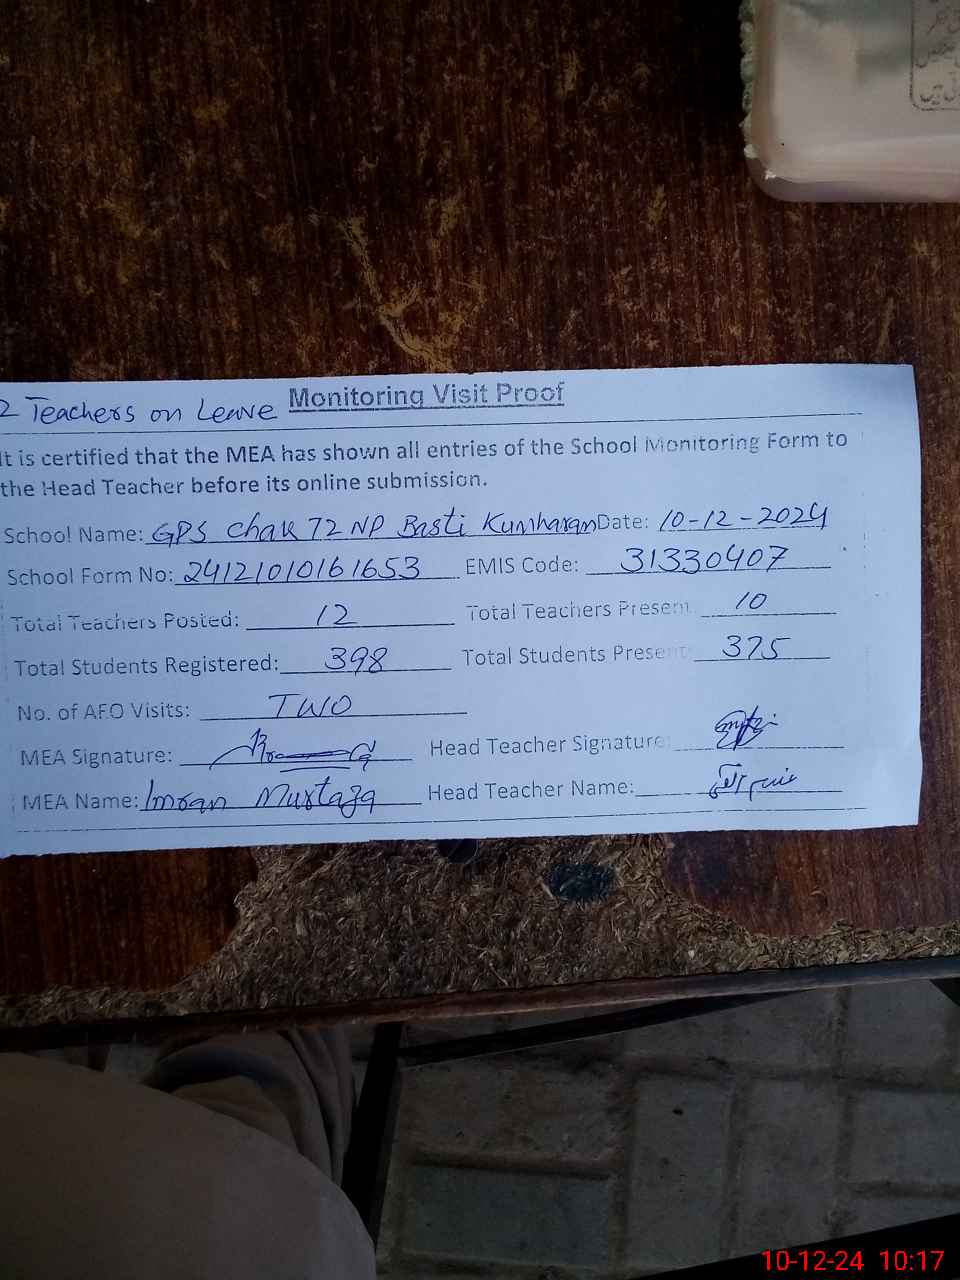 2 Teachers on Leave Monitoring Visit Proof
It is certified that the MEA has shown all entries of the School Monitoring Form to
the Head Teacher before its online submission.
School Name: GPS Chak 72 NP Basti Kumharan Date: 10-12-2024
School Form No: 24121010161653 EMIS Code: 31330407
Total Teachers Posted: 12 Total Teachers Present 10
Total Students Registered: 398 Total Students Present 375
No. of AEO Visits: TWO
MEA Signature: Head Teacher Signature:
MEA Name: Imran Murtaza Head Teacher Name:
10-12-24 10:17